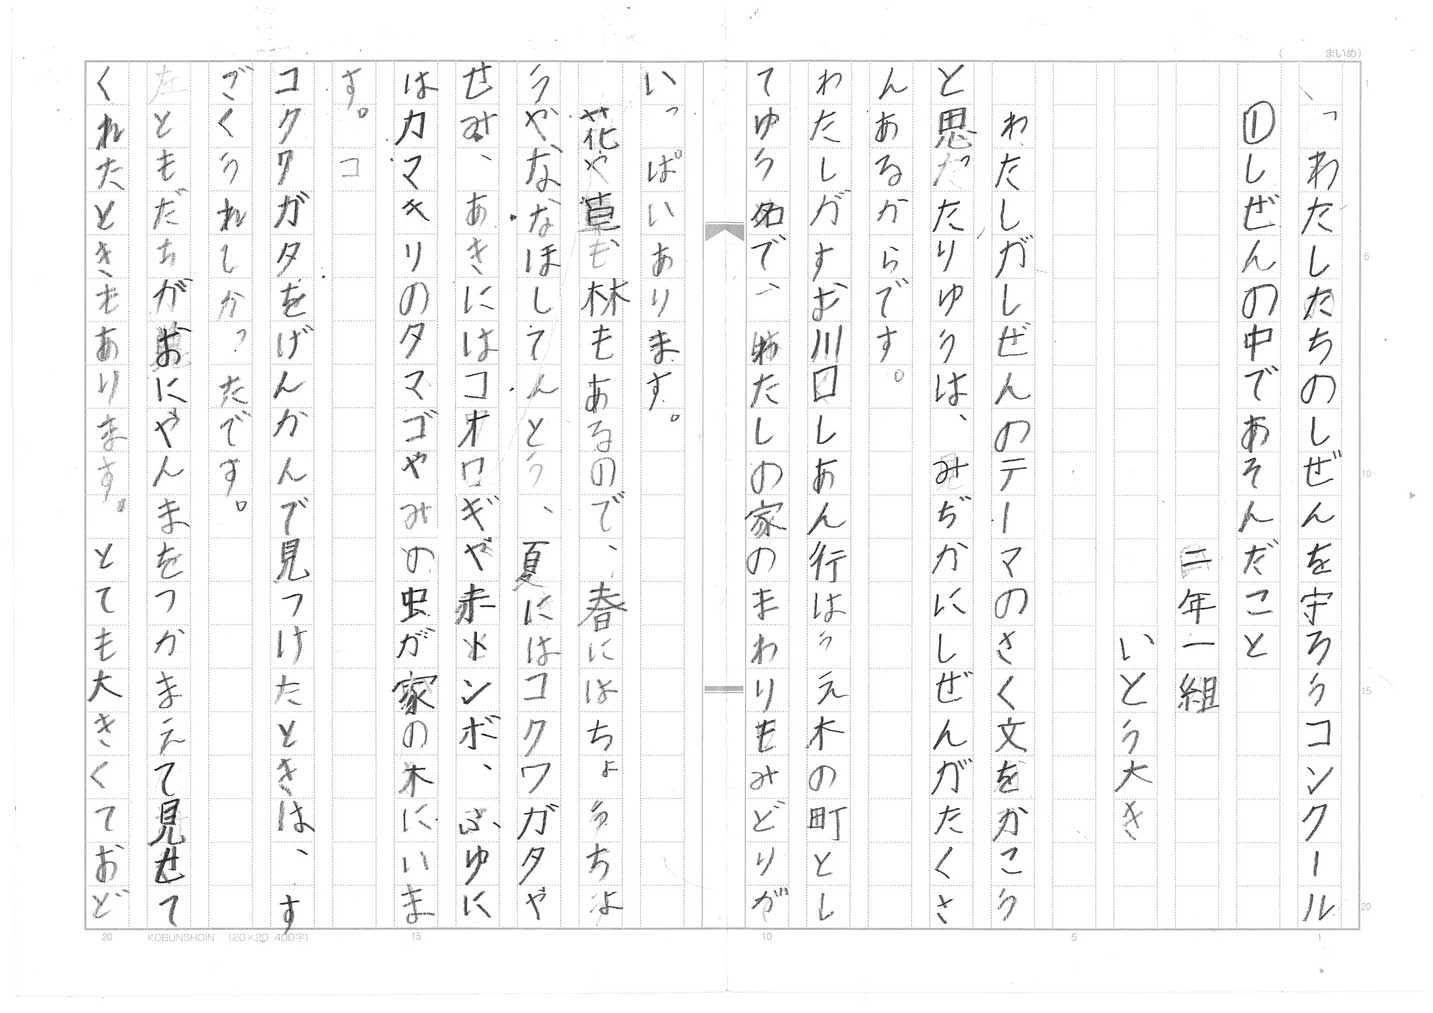 (　　　まいめ)
「わたしたちのしぜんを守ろうコンクール
①しぜんの中であそんだこと
二年一組
いとう大き
わたしがしぜんのテーマのさく文をかこう
と思ったりゆうは、みぢかにしぜんがたくさ
んあるからです。
わたしがすむ川口しあん行はうえ木の町とし
てゆう名で、わたしの家のまわりもみどりが
いっぱいあります。
花や草も林もあるので、春にはちょうちょ
うやななほしてんとう、夏にはコクワガタや
せみ、あきにはコオロギや赤トンボ、ふゆに
はカマキリのタマゴやみの虫が家の木にいま
す。コ
コクワガタをげんかんで見つけたときは、す
ごくうれしかったです。
ともだちがおにやんまをつかまえて見せて
くれたときもあります。とても大きくておど
1
5
10
15
20
20
KOBUNSHOIN (20×20 400字)
15
10
5
1